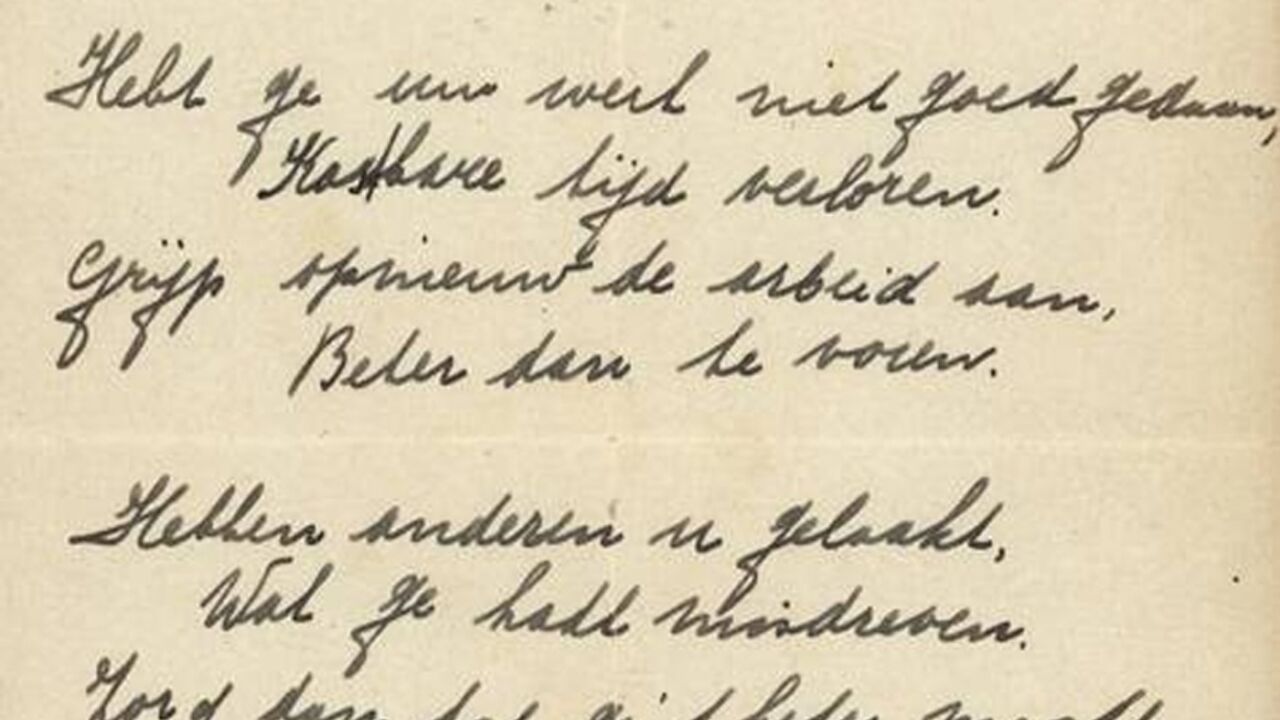 Hebt ge uw werk niet goed gedaan,
Kostbare tijd verloren.
Grijp opnieuw de arbeid aan,
Beter dan te voren.
Hebben anderen u gelaakt,
Wat ge hadt misdreven.
Zorg dan dat gij 't beter maakt